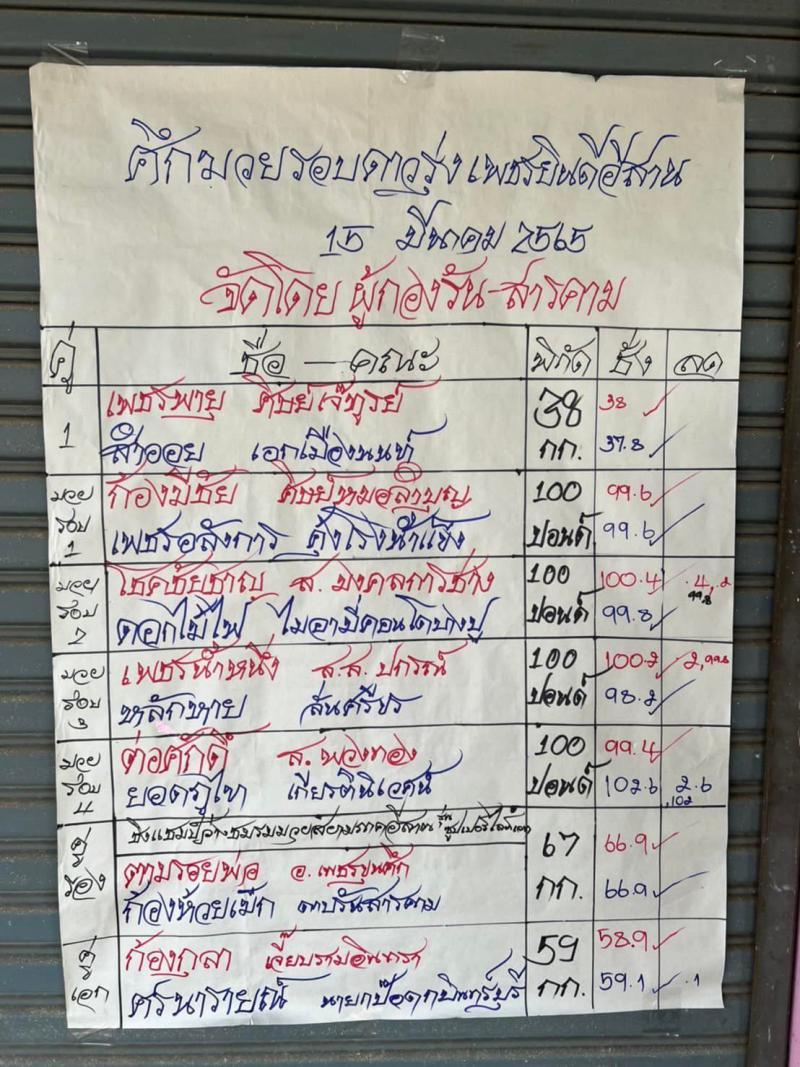 ศึกมวยรอบดาวรุ่ง เพชรยินดีอีสาน
15 มีนาคม 2565
จัดโดย ผู้กองรัน-สารคาม
คู่ ชื่อ — คณะ พิกัด ชั่ง ลด
เพชรพายุ ศิษย์เจ๊ 38 38
1 ลำออย เอกเมืองนนท์ กก. 37.8
มวย ก้องมีชัย ศิษย์หมอลำบุญ 100 99.6
รอบ 1 เพชรอลังการ คุ้งโรงน้ำแข็ง ปอนด์ 99.6
มวย โชคชัยชาญ ส. มงคลการช่าง 100 100.4 .4
รอบ 2 ดอกไม้ไฟ ไมอามี่คอนโดบางปู ปอนด์ 99.8
มวย เพชรน้ำหนึ่ง ส.ส. ปกรณ์ 100 100.2
รอบ 3 หลักหาย ปอนด์ 98.2
มวย ต่อศักดิ์ ส. พวงทอง 100 99.4
รอบ 4 ยอดภูไท เกียรตินิเวศน์ ปอนด์ 102.6 2.6
.102
ชิงแชมป์ว่างชมรมมวยสยามภาคอีสาน รุ่น
คู่ ตามรอยพ่อ อ. เพชรขุนศึก 67 66.9
รอง ก้องห้วยเม็ก ดาบรันสารคาม กก. 66.9
คู่ ก้องกุลา เจี๊ยบรามอินทรา 59 58.9
เอก ศรนารายณ์ กก. 59.1 .1